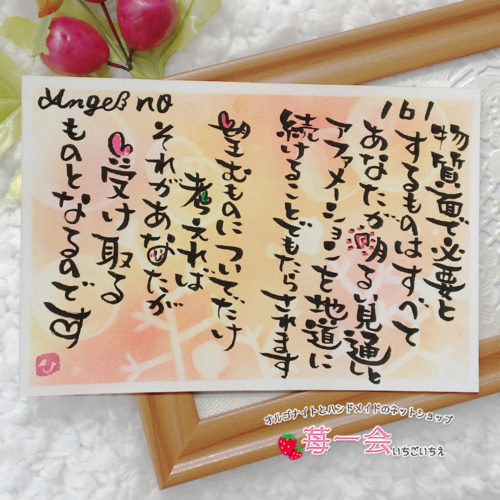 Angel no
161
物質面で必要と
するものはすべて
あなたが明るい見通しと
アファメーションを地道に
続けることでもたらされます
望むものについてだけ
考えれば
それがあなたが
受け取る
ものとなるのです
オルゴナイトとハンドメイドのネットショップ
苺一会いちごいちえ